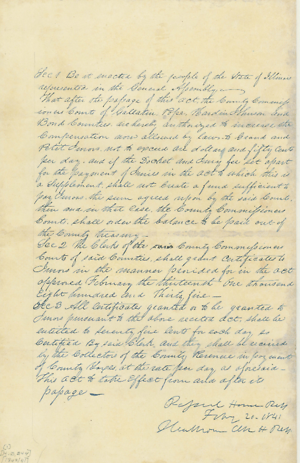 Sec 1 Be it enacted by the people of the State of Illinois
represented in the General Assembly
That after the passage of this act the County Commiss
ioners Court of Gallatin, Pope, Hardin, and
Bond Counties be authorized to increase the
Compensation now allowed by law to Grand and
Petit Jurors not to exceed one dollar and fifty Cents
per day and if the Docket and Jury fee set apart
for the payment of Jurors in the act to which this is
a Supplement shall not Create a fund sufficient to
pay Jurors the sum agreed upon by the said Court
then and in that Case the County Commissioners
Court shall order the balance to be paid out of
the County Treasury
Sec 2 The Clerks of the County Commissioners
Courts of said Counties, shall grant Certificates to
Jurors in the manner provided for in the act
approved February the thirteenth One thousand
Eight hundred and Thirty five
Sec 3 All Certificates granted or to be granted to
Jurors pursuant to the above recited act, shall be
entitled to seventy five Cents for each day so
Certified by said Clerk, and they shall be received
by the Collectors of the County Revenue in payment
of County taxes at the rate per day as aforesaid
This act to take effect from and after its
passage
Passed House Reps
Feby 20. 1841
Clk H Reps